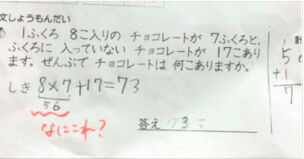 文しょうもんだい
1ふくろ 8こ入りの チョコレートが 7ふくろと、
ふくろに 入っていない チョコレートが 17こあり
ます。ぜんぶで チョコレートは 何こありますか。
しき 8×7+17=73
56
なにこれ?
答え 73こ
5
+1
7